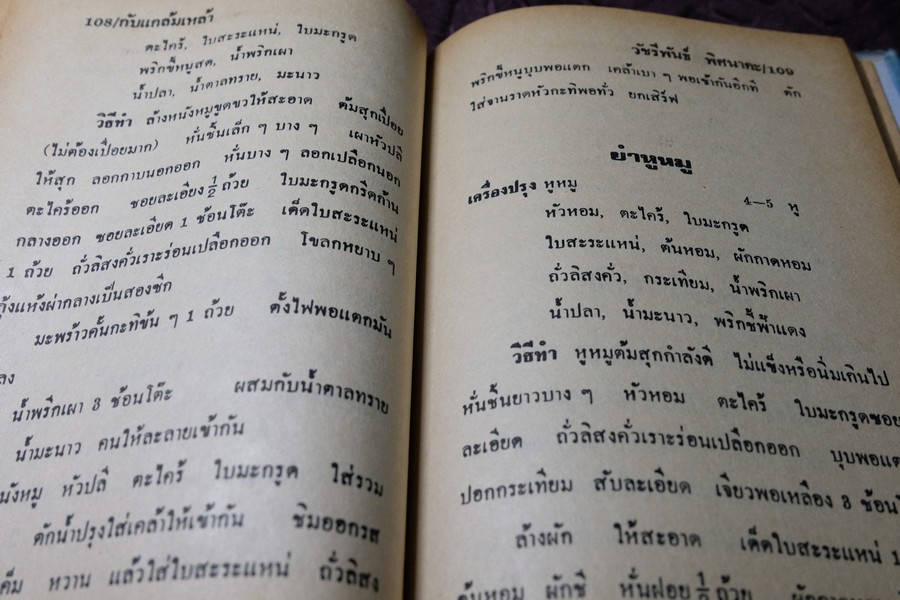 108/กับแกล้มเหล้า
ตะไคร้, ใบสะระแหน่, ใบมะกรูด
พริกขี้หนูสด, น้ำพริกเผา
น้ำปลา, น้ำตาลทราย, มะนาว
วิธีทำ ล้างหนังหมูขูดขวให้สะอาด ต้มสุกเปื่อย
(ไม่ต้องเปื่อยมาก) หั่นชิ้นเล็ก ๆ บาง ๆ เผาหัวปลี
ให้สุก ลอกกาบนอกออก หั่นบาง ๆ ลอกเปลือกนอก
ตะไคร้ออก ซอยละเอียง ½ ถ้วย ใบมะกรูดกรีดก้าน
กลางออก ซอยละเอียด 1 ช้อนโต๊ะ เด็ดใบสะระแหน่
1 ถ้วย ถั่วลิสงคั่วเราะร่อนเปลือกออก โขลกหยาบ ๆ
กุ้งแห้งผ่ากลางเป็นสองซีก
มะพร้าวคั้นกะทิข้น ๆ 1 ถ้วย ตั้งไฟพอแตกมัน
ลง
น้ำพริกเผา 3 ช้อนโต๊ะ ผสมกับน้ำตาลทราย
น้ำมะนาว คนให้ละลายเข้ากัน
หนังหมู หัวปลี ตะไคร้ ใบมะกรูด ใส่รวม
ตักน้ำปรุงใส่เคล้าให้เข้ากัน ชิมออกรส
เค็ม หวาน แล้วใส่ใบสะระแหน่ ถั่วลิสง
วัชรีพันธ์ พิศนาคะ/109
พริกขี้หนูบุบพอแตก เคล้าเบา ๆ พอเข้ากันอีกที ตัก
ใส่จานราดหัวกะทิพอทั่ว ยกเสิร์ฟ
ยำหูหมู
เครื่องปรุง หูหมู 4—5 หู
หัวหอม, ตะไคร้, ใบมะกรูด
ใบสะระแหน่, ต้นหอม, ผักกาดหอม
ถั่วลิสงคั่ว, กระเทียม, น้ำพริกเผา
น้ำปลา, น้ำมะนาว, พริกชี้ฟ้าแดง
วิธีทำ หูหมูต้มสุกกำลังดี ไม่แข็งหรือนิ่มเกินไป
หั่นชิ้นยาวบาง ๆ หัวหอม ตะไคร้ ใบมะกรูดซอย
ละเอียด ถั่วลิสงคั่วเราะร่อนเปลือกออก บุบพอแต
ปอกกระเทียม สับละเอียด เจียวพอเหลือง 3 ช้อนโ
ล้างผัก ให้สะอาด เด็ดใบสะระแหน่
ต้นหอม ผักชี หั่นฝอย ½ ถ้วย